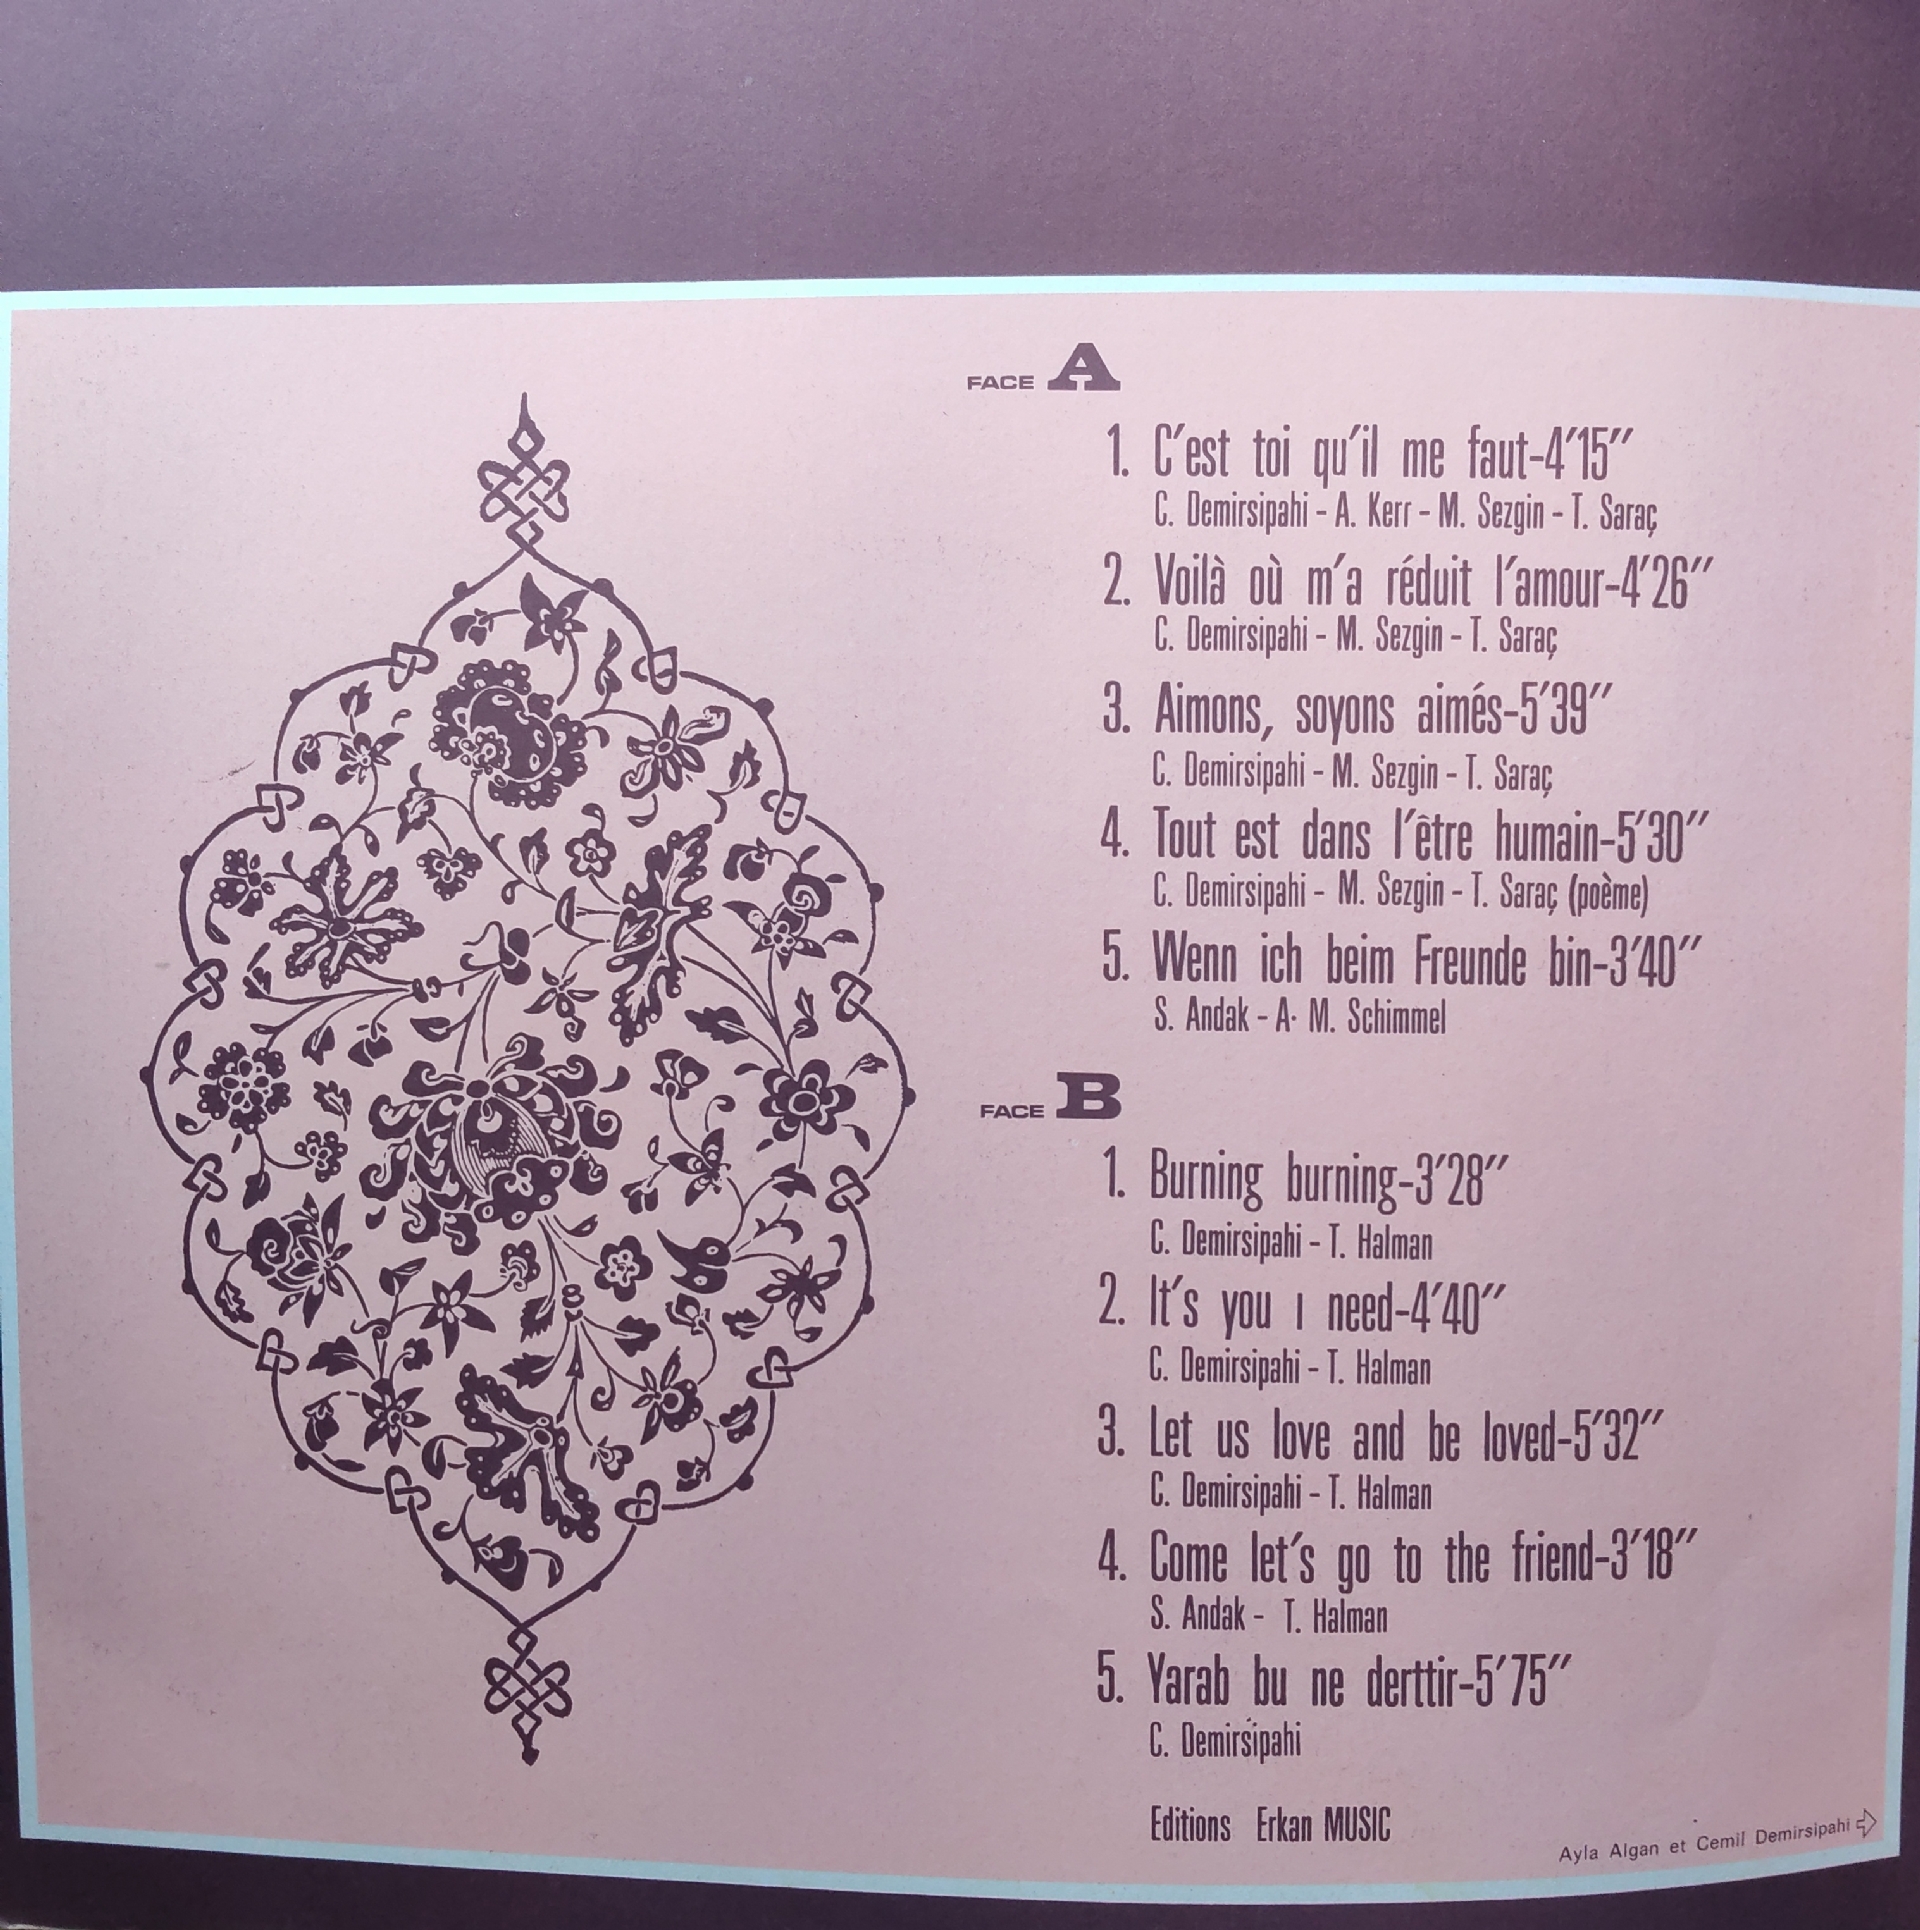 FACE A
1. C'est toi qu'il me faut-4'15"
C. Demirsipahi - A. Kerr - M. Sezgin - T. Saraç
2. Voilà où m'a réduit l'amour-4'26"
C. Demirsipahi - M. Sezgin - T. Saraç
3. Aimons, soyons aimés-5'39"
C. Demirsipahi - M. Sezgin - T. Saraç
4. Tout est dans l'être humain-5'30"
C. Demirsipahi - M. Sezgin - T. Saraç (poème)
5. Wenn ich beim Freunde bin-3'40"
S. Andak - A· M. Schimmel
FACE B
1. Burning burning-3'28"
C. Demirsipahi - T. Halman
2. It's you ı need-4'40"
C. Demirsipahi - T. Halman
3. Let us love and be loved-5'32"
C. Demirsipahi - T. Halman
4. Come let's go to the friend-3'18"
S. Andak - T. Halman
5. Yarab bu ne derttir-5'75"
C. Demirsipahi
Editions Erkan MUSIC
Ayla Algan et Cemil Demirsipahi